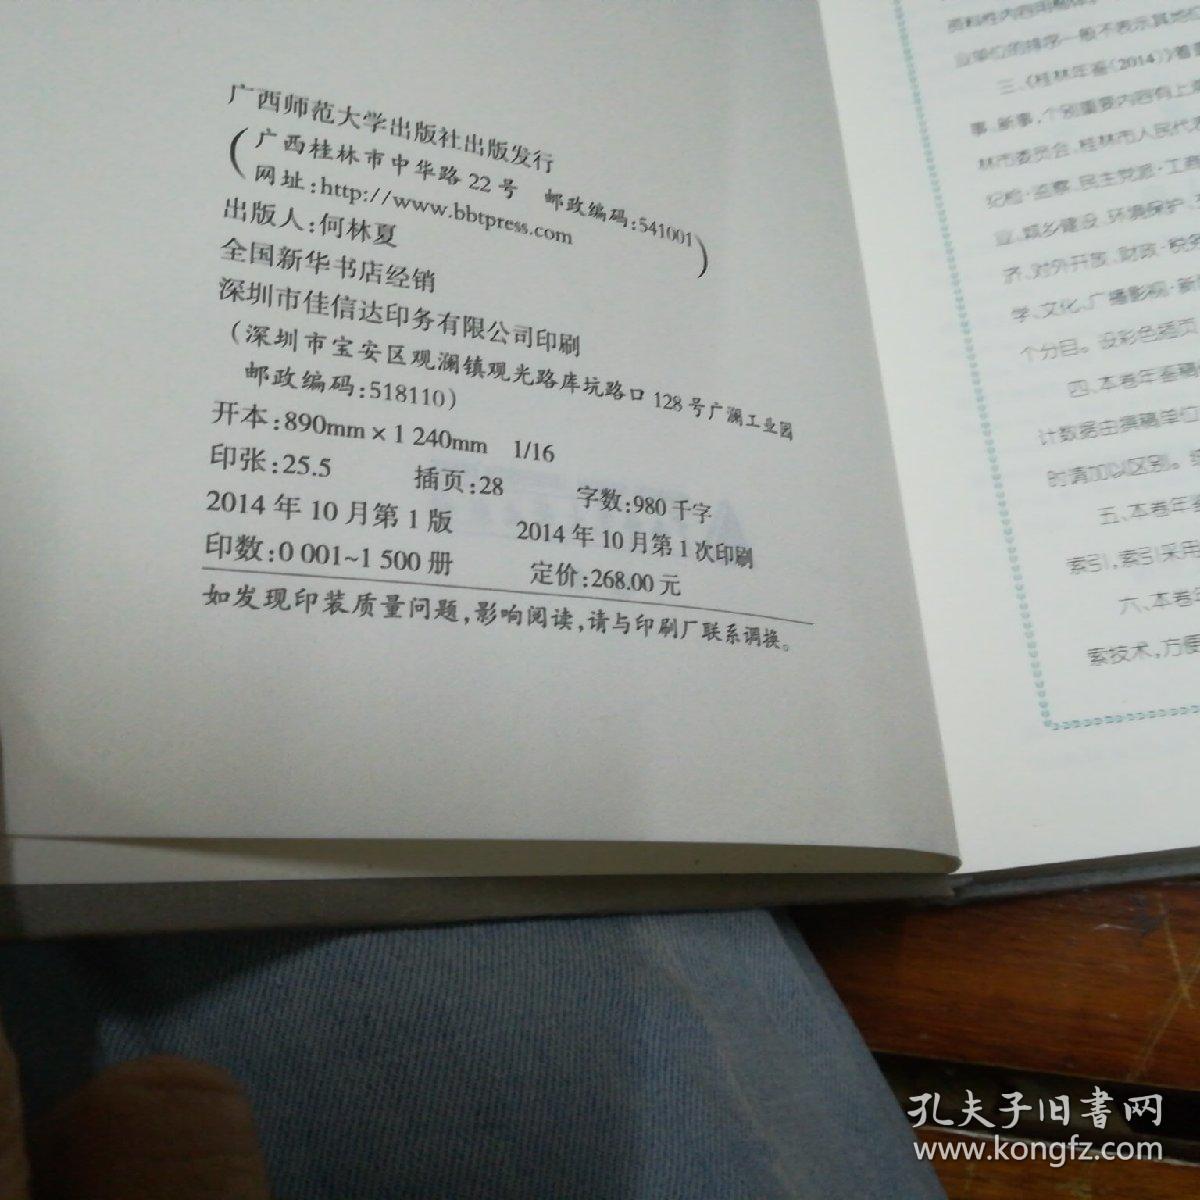 广西师范大学出版社出版发行
(广西桂林市中华路22号 邮政编码:541001
网址:http://www.bbtpress.com)
出版人:何林夏
全国新华书店经销
深圳市佳信达印务有限公司印刷
(深圳市宝安区观澜镇观光路库坑路口128号广澜工业园
邮政编码:518110)
开本:890mm×1 240mm 1/16
印张:25.5 插页:28 字数:980千字
2014年10月第1版 2014年10月第1次印刷
印数:0 001~1 500册 定价:268.00元
如发现印装质量问题,影响阅读,请与印刷厂联系调换。
业单位的排序一般不表示其地位
三、《桂林年鉴(2014)》着重
事、新事,个别重要内容有上溯
林市委员会、桂林市人民代表
纪检·监察、民主党派·工商
业、城乡建设、环境保护、
济、对外开放、财政·税务
学、文化、广播影视·新闻
个分目。设彩色插页
四、本卷年鉴稿
计数据由撰稿单位
时请加以区别。
五、本卷年鉴
索引,索引采用
六、本卷年
索技术,方便
孔夫子旧书网
www.kongfz.com